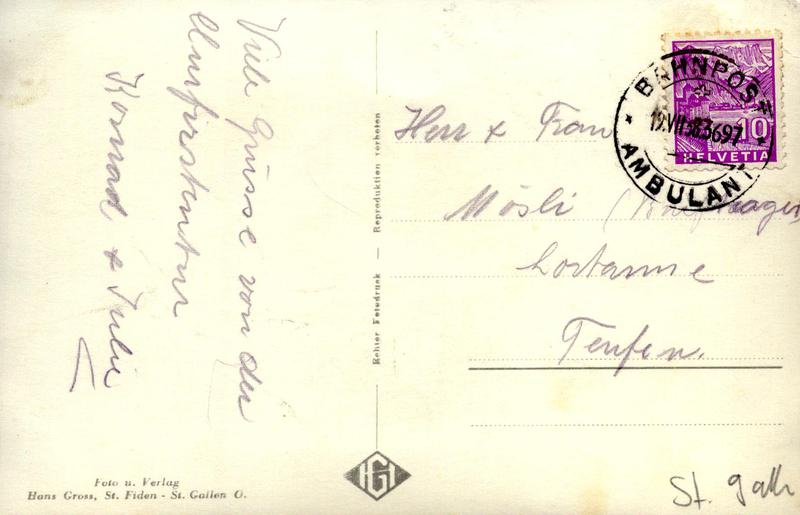 Viele Grüsse von der
Churfirstentur
Konrad & Julie
Reproduktion verboten
Echter Fotodruck
Foto u. Verlag
Hans Gross, St. Fiden - St. Gallen O.
HG
BAHNPOST
AMBULANT
10
HELVETIA
Herr & Frau
Mösli
Teufen.
St. Gall